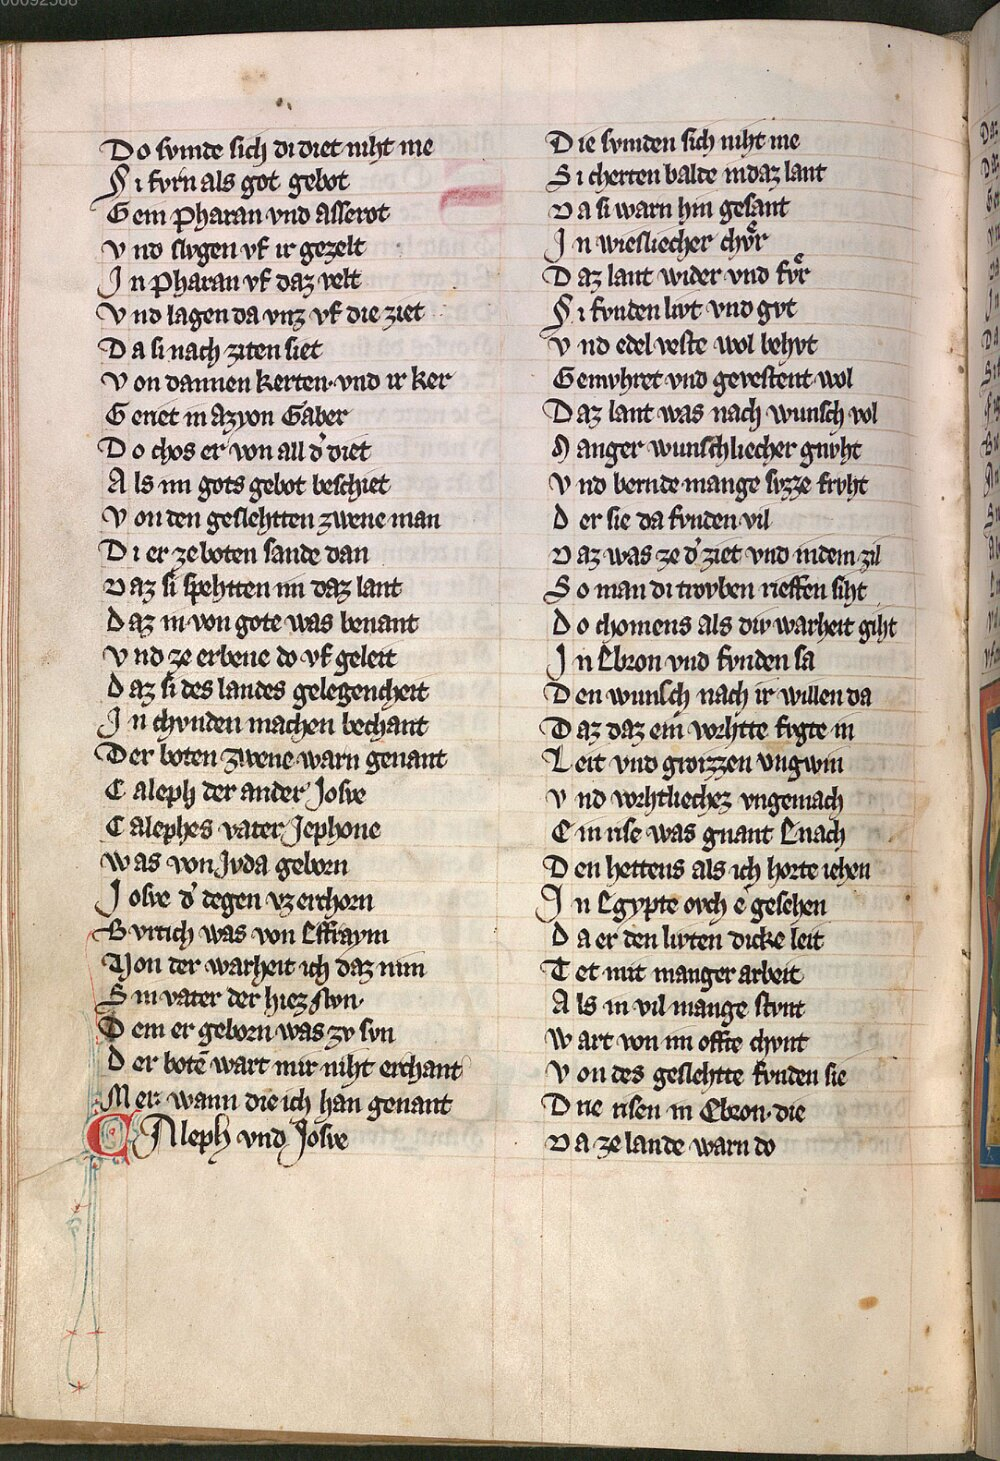 00092588
Do svmde sich di diet niht me
Si fvrn als got gebot
Gein Pharan vnd Asserot
Vnd slvgen vf ir gezelt
In Pharan vf daz velt
Vnd lagen da vnz vf die ziet
Da si nach ziten siet
Von dannen kerten vnd ir ker
Genet in Azyon Gaber
Do chos er von all d' diet
Als im gots gebot beschiet
Von den geslehtten zwene man
Di er ze boten sande dan
Daz si spehtten im daz lant
Daz in von gote was benant
Vnd ze erbene do vf geleit
Daz si des landes gelegencheit
In chvnden machen bechant
Der boten zwene warn genant
Caleph der ander Josve
Calephes vater Jephone
Was von Jvda geborn
Josve d' degen vz erchorn
Bvrtich was von Effraym
Von der warheit ich daz nim
Sin vater der hiez Nvn
Dem er geborn was zv svn
Der botē wart mir niht erchant
Mer wann die ich han genant
CAleph vnd Josve
Die svmden sich niht me
Si cherten balde in daz lant
Da si warn hin gesant
In wiesliecher chvͦr
Daz lant wider vnd fvͦr
Si fvnden livt vnd gvt
Vnd edel veste wol behvt
Gemvhret vnd gevestent wol
Daz lant was nach wunsch vol
Manger wunschliecher gnvht
Vnd bernde mange svzze frvht
Der sie da fvnden vil
Daz was ze d' ziet vnd in dem zil
So man di trovben rieffen siht
Do chomens als div warheit giht
In Ebron vnd fvnden sa
Den wunsch nach ir willen da
Daz daz ein vorhtte fvgte in
Leit vnd groizzen vngwin
Vnd vorhtliechez vngemach
Ein rise was gnant Enach
Den hettens als ich horte iehen
In Egypte ovch e gesehen
Da er den livten dicke leit
Tet mit manger arbeit
Als in vil mange stvnt
Wart von im offte chvnt
Von des geslehtte fvnden sie
Drie risen in Ebron die
Da ze lande warn do